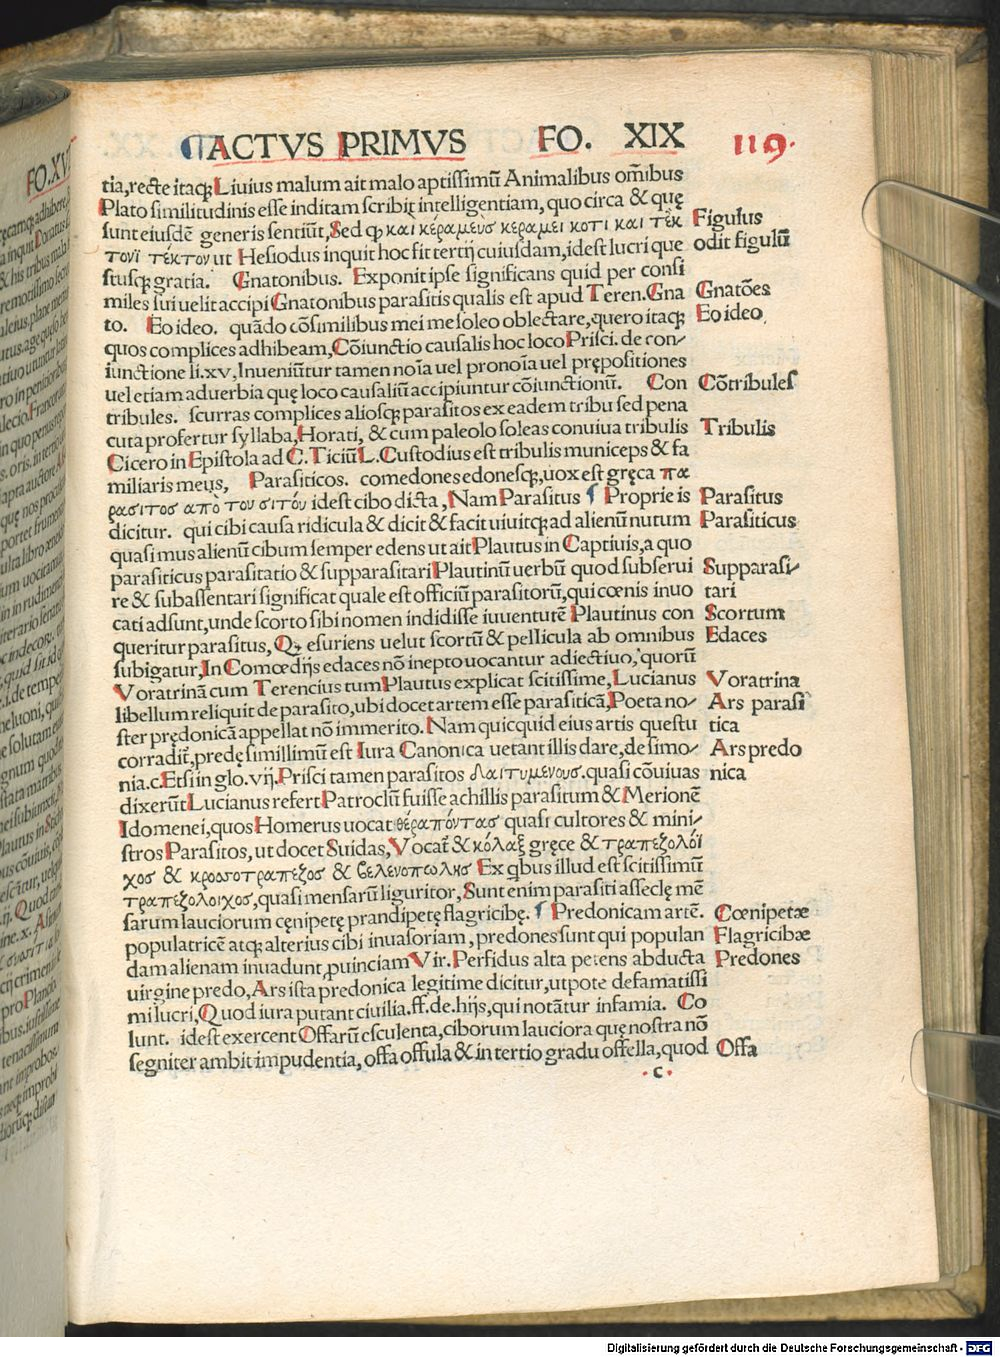 ACTVS PRIMVS FO. XIX
119.
tia,recte itaqꝫ Liuius malum ait malo aptissimū Animalibus om̄ibus
Plato similitudinis esse inditam scribit intelligentiam, quo circa & quę
sunt eiusdē generis sentiūt, Sed ꝙ καὶ κέραμεὺσ κεραμει κοτι και τἐκ
τονϊ τἐκτον ut Hesiodus inquit hoc fit tertij cuiusdam, idest lucri que
stusqꝫ gratia. Gnatonibus. Exponit ipse significans quid per consi
miles sui uelit accipi Gnatonibus parasitis qualis est apud Teren. Gna
to. Eo ideo. quādo cōsimilibus mei me soleo oblectare, quero itaqꝫ
quos complices adhibeam, Cōiunctio causalis hoc loco Prisci. de con/
iunctione li.xv, Inueniūtur tamen noīa uel pronoīa uel prępositiones
uel etiam aduerbia quę loco causaliū accipiuntur cōiunctionū. Con
tribules. scurras complices aliosqꝫ parasitos ex eadem tribu sed pena
cuta profertur syllaba, Horati, & cum paleolo soleas conuiua tribulis
Cicero in Epistola ad C. Ticiū L. Custodius est tribulis municeps & fa
miliaris meus, Parasiticos. comedones edonesqꝫ, uox est gręca πα
ρασιτοσ απὸ του σιτόυ idest cibo dicta, Nam Parasitus ¶ Proprie is
dicitur. qui cibi causa ridicula & dicit & facit uiuitqꝫ ad alienū nutum
quasi mus alienū cibum semper edens ut ait Plautus in Captiuis, a quo
parasiticus parasitatio & supparasitari Plautinū uerbū quod subserui
re & subassentari significat quale est officiū parasitorū, qui cœnis inuo
cati adsunt, unde scorto sibi nomen indidisse iuuenturē Plautinus con
queritur parasitus, Qꝫ esuriens uelut scortū & pellicula ab omnibus
subigatur, In Comœdijs edaces nō inepto uocantur adiectiuo, quorū
Voratrinā cum Terencius tum Plautus explicat scitissime, Lucianus
libellum reliquit de parasito, ubi docet artem esse parasiticā, Poeta no/
ster prędonicā appellat nō immerito. Nam quicquid eius artis questu
corradit̄, predę simillimū est Iura Canonica uetant illis dare, de simo/
nia.c. Etsi in glo.vij. Prisci tamen parasitos δαιτυμενουσ.quasi cōuiuas
dixerūt Lucianus refert Patroclū fuisse achillis parasitum & Merionē
Idomenei, quos Homerus uocat θέραπόντασ quasi cultores & mini/
stros Parasitos, ut docet Suidas, Vocat̄ & κόλαξ gręce & τραπεζολόϊ
χοσ & κροσοτραπεζοσ & βελενοπωλησ Ex qbus illud est scitissimū
τραπεζολοιχοσ, quasi mensarū liguritor, Sunt enim parasiti asseclę mē
sarum lauciorum cęnipetę prandipetę flagricibę. ¶ Predonicam artē.
populatricē atqꝫ alterius cibi inuasoriam, predones sunt qui populan
dam alienam inuadunt ꝓuinciam Vir. Perfidus alta petens abducta
uirgine predo, Ars ista predonica legitime dicitur, utpote defamatissi
mi lucri, Quod iura putant ciuilia.ff.de.hijs, qui notātur infamia. Co
lunt. idest exercent Offarū esculenta, ciborum lauciora quę nostra nō
segniter ambit impudentia, offa offula & in tertio gradu offella, quod
.c.
Figulus
odit figulū
Gnatōes
Eo ideo,
Cōtribules
Tribulis
Parasitus
Parasiticus
Supparasi/
tari
Scortum
Edaces
Voratrina
Ars parasi
tica
Ars predo
nica
Cœnipetæ
Flagricibæ
Predones
Offa
Digitalisierung gefördert durch die Deutsche Forschungsgemeinschaft - DFG